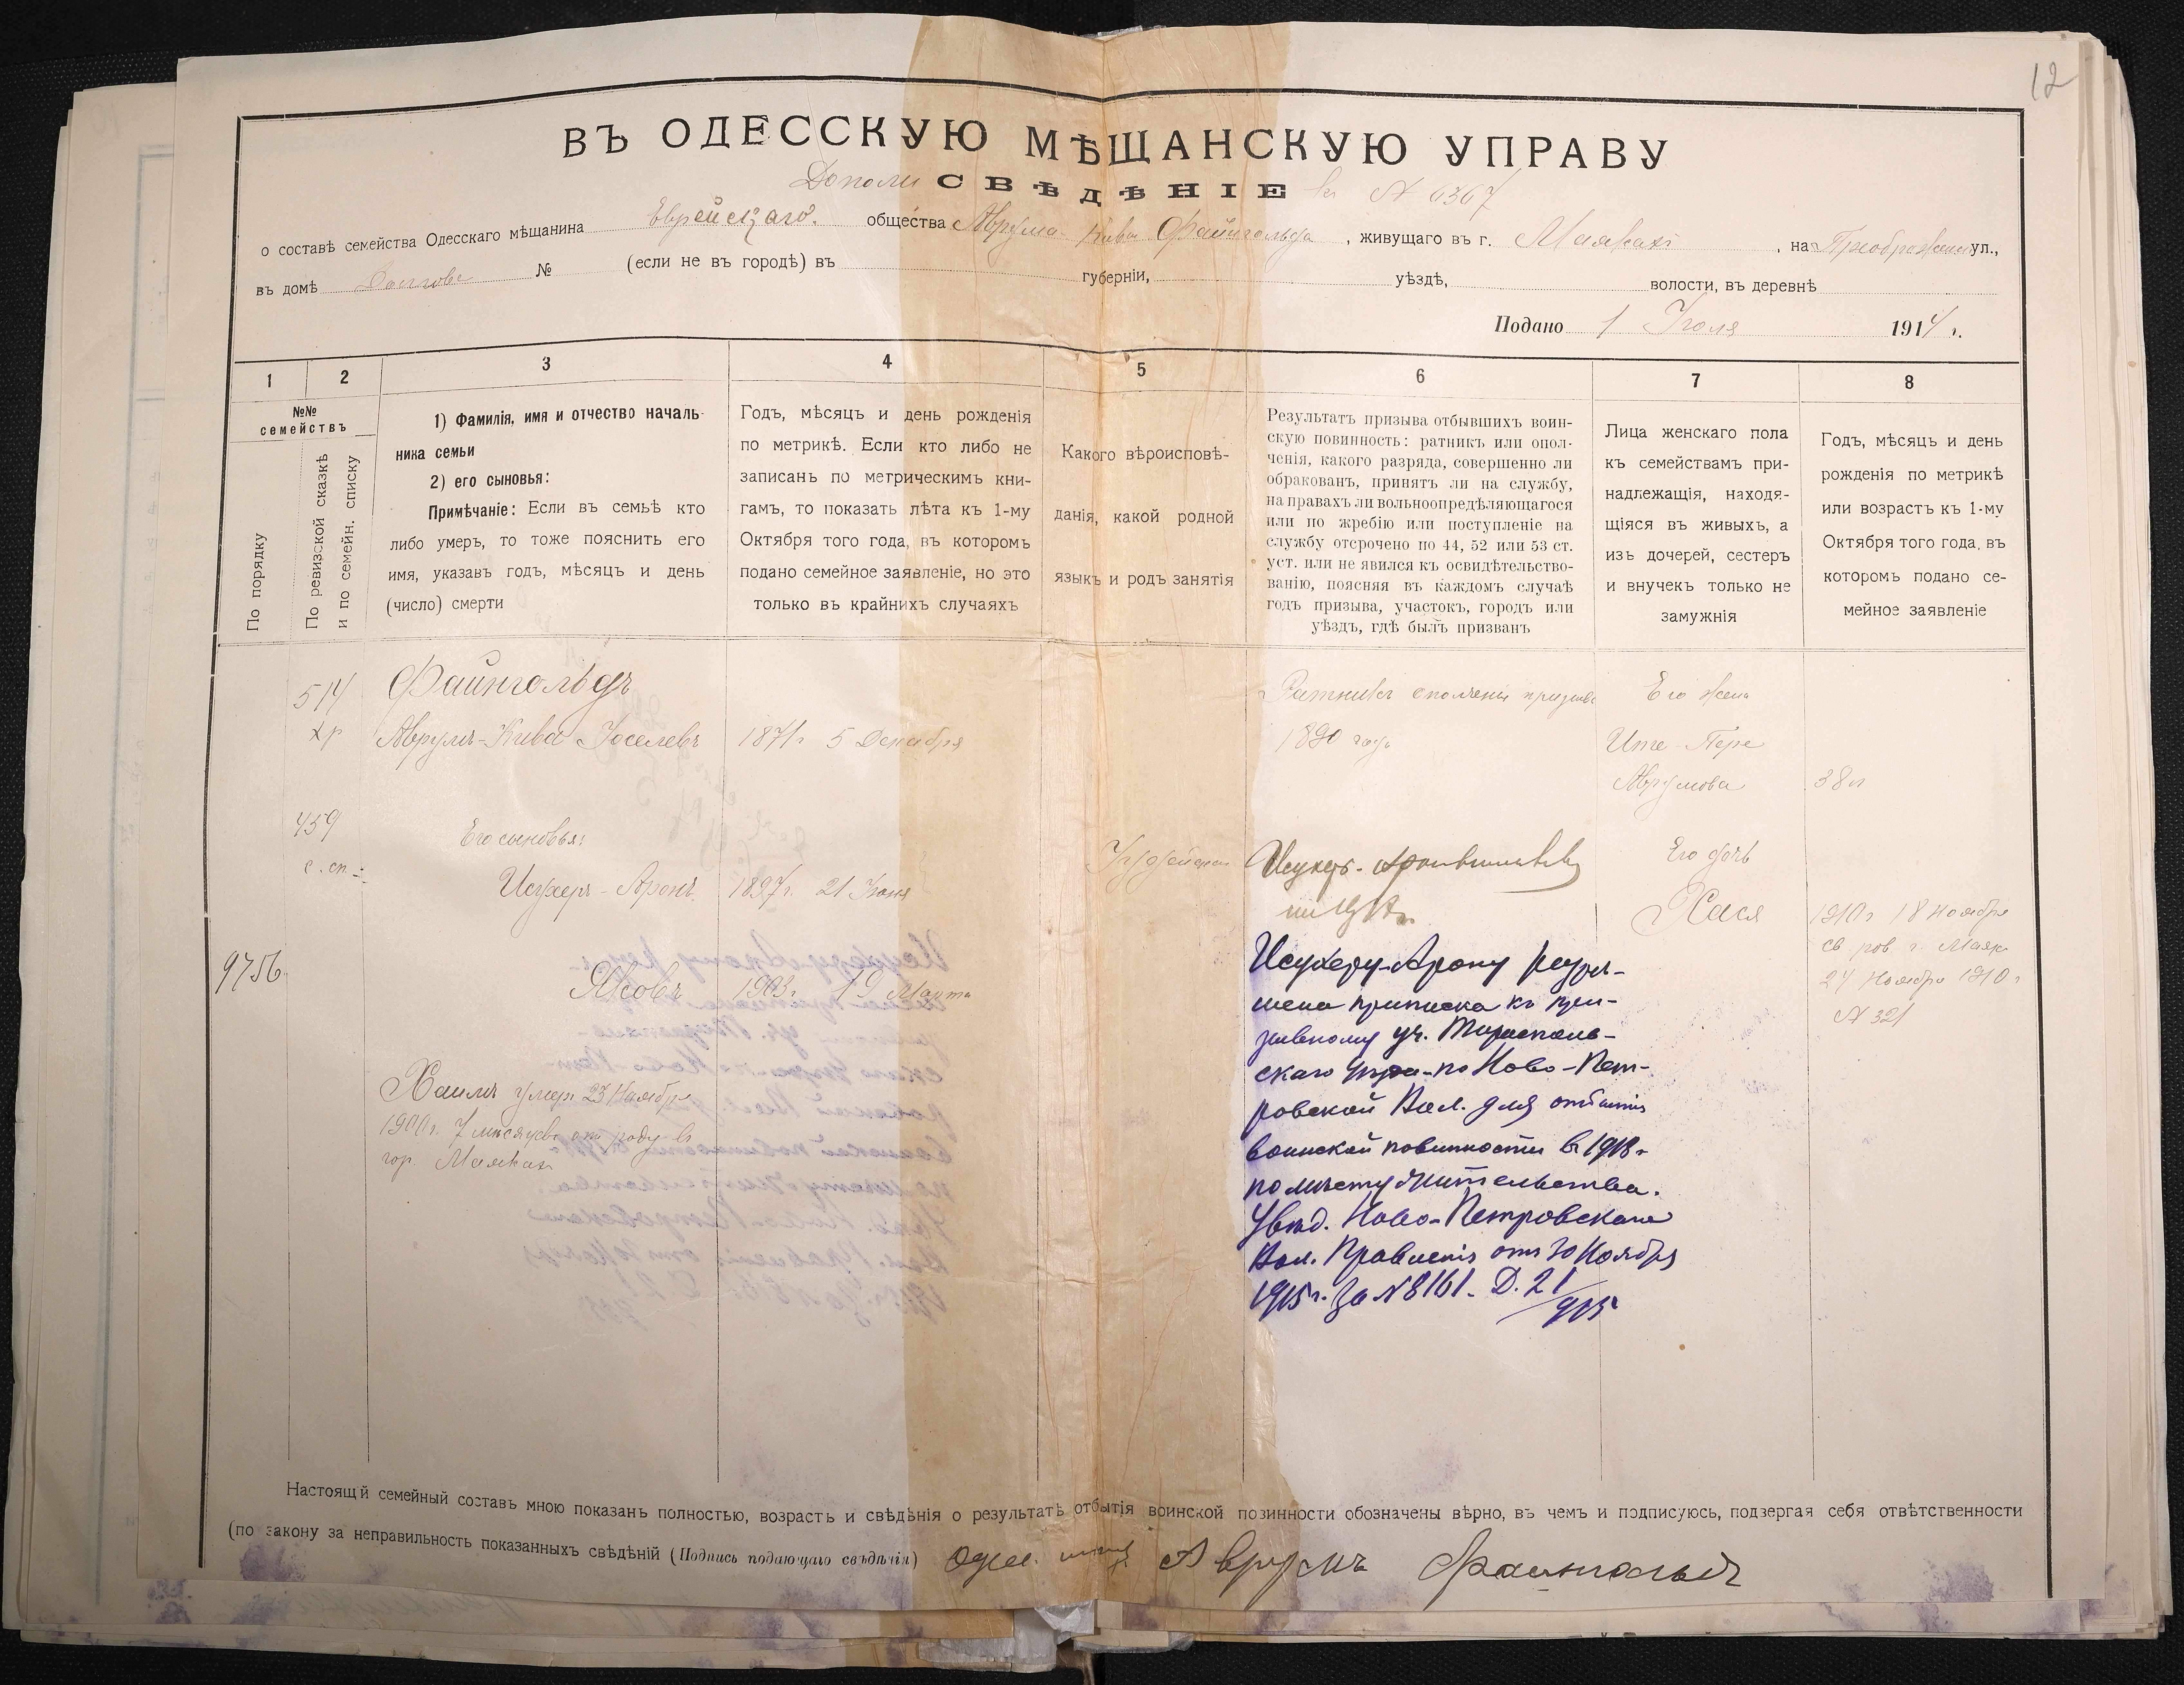 12
ВЪ ОДЕССКУЮ МѢЩАНСКУЮ УПРАВУ
Дополн СВѢДѢНІЕ къ № 6367
о составѣ семейства Одесскаго мѣщанина Еврейскаго общества Аврума Кива Файнгольда, живущаго въ г. Маякахъ, на Преображенской ул.,
въ домѣ № (если не въ городѣ) въ губерніи, уѣздѣ, волости, въ деревнѣ
Подано 1 Іюля 1914 г.
1 2 3 4 5 6 7 8
№№ семействъ
По порядку
По ревизской сказкѣ
и по семейн. списку
1) Фамилія, имя и отчество началь-
ника семьи
2) его сыновья:
Примѣчаніе: Если въ семьѣ кто
либо умеръ, то тоже пояснить его
имя, указавъ годъ, мѣсяцъ и день
(число) смерти
Годъ, мѣсяцъ и день рожденія
по метрикѣ. Если кто либо не
записанъ по метрическимъ кни-
гамъ, то показать лѣта къ 1-му
Октября того года, въ которомъ
подано семейное заявленіе, но это
только въ крайнихъ случаяхъ
Какого вѣроисповѣ-
данія, какой родной
языкъ и родъ занятія
Результатъ призыва отбывшихъ воин-
скую повинность: ратникъ или опол-
ченія, какого разряда, совершенно ли
обракованъ, принятъ ли на службу,
на правахъ ли вольноопредѣляющагося
или по жребію или поступленіе на
службу отсрочено по 44, 52 или 53 ст.
уст. или не явился къ освидѣтельство-
ванію, поясняя въ каждомъ случаѣ
годъ призыва, участокъ, городъ или
уѣздъ, гдѣ былъ призванъ
Лица женскаго пола
къ семействамъ при-
надлежащія, находя-
щіяся въ живыхъ, а
изъ дочерей, сестеръ
и внучекъ только не
замужнія
Годъ, мѣсяцъ и день
рожденія по метрикѣ
или возрастъ къ 1-му
Октября того года, въ
которомъ подано се-
мейное заявленіе
514
Файнгольдъ
Аврумъ-Кива Іоселевъ
1871 г 5 Декабря
Ратникъ ополченія призыва
1890 года
Его жена
Ите Пере
Аврумова
38 л
459
с. сп.
Его сыновья:
Исухеръ-Аронъ
1897 г. 21 Іюня
Іудейскаго
Его дочь
Хася
1910 г 18 Ноября
св. рав г. Маяк
24 Ноября 1910 г
№ 321
9756
Яковъ
1903 г. 19 Марта
Хаимъ умеръ 23 Ноября
1900 г. 7 мѣсяцевъ отъ роду въ
гор. Маякахъ
Исухеру-Арону разрѣ-
шена приписка къ при-
зывному уч. Тирасполь-
скаго уѣзда по Ново-Пет-
ровской Вол. для отбытія
воинской повинности въ 1918 г
по мѣсту жительства.
Увѣд. Ново-Петровскаго
Вол. Правленія отъ 30 Ноября
1915 г. за № 8161. Д. 21/915
Настоящій семейный составъ мною показанъ полностью, возрастъ и свѣдѣнія о результатѣ отбытія воинской повинности обозначены вѣрно, въ чемъ и подписуюсь, подвергая себя отвѣтственности
(по закону за неправильность показанныхъ свѣдѣній (Подпись подающаго свѣдѣнія) Одес. Аврумъ Файнгольдъ